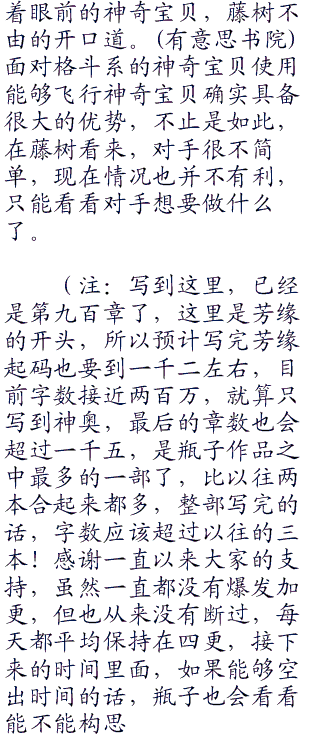 着眼前的神奇宝贝，藤树不
由的开口道。(有意思书院)
面对格斗系的神奇宝贝使用
能够飞行神奇宝贝确实具备
很大的优势，不止是如此，
在藤树看来，对手很不简
单，现在情况也并不有利，
只能看看对手想要做什么
了。
（注：写到这里，已经
是第九百章了，这里是芳缘
的开头，所以预计写完芳缘
起码也要到一千二左右，目
前字数接近两百万，就算只
写到神奥，最后的章数也会
超过一千五，是瓶子作品之
中最多的一部了，比以往两
本合起来都多，整部写完的
话，字数应该超过以往的三
本！感谢一直以来大家的支
持，虽然一直都没有爆发加
更，但也从来没有断过，每
天都平均保持在四更，接下
来的时间里面，如果能够空
出时间的话，瓶子也会看看
能不能构思